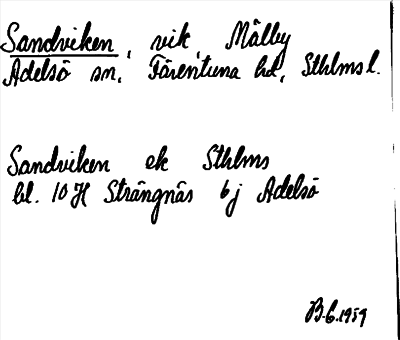 Sandviken, vik, Målby
Adelsö sn, Färentuna hd, Sthlms l.
Sandviken ek Sthlms
bl. 10 H Strängnäs 6j Adelsö
B.G. 1959